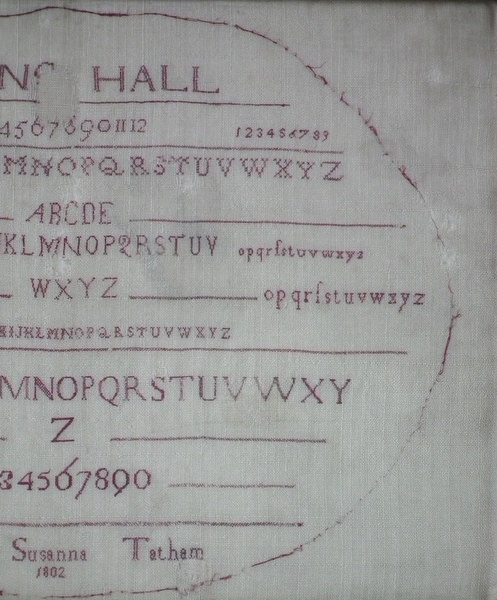 HALL
4567890 11 12 123456789
MNOPQRSTUVWXYZ
ABCDE
JKLMNOPQRSTUV opqrſstuvwxyz
WXYZ opqrſstuvwzyz
HIJKLMNOPQRSTUVWXYZ
MNOPQRSTUVWXY
Z
34567890
Susanna Tatham
1802